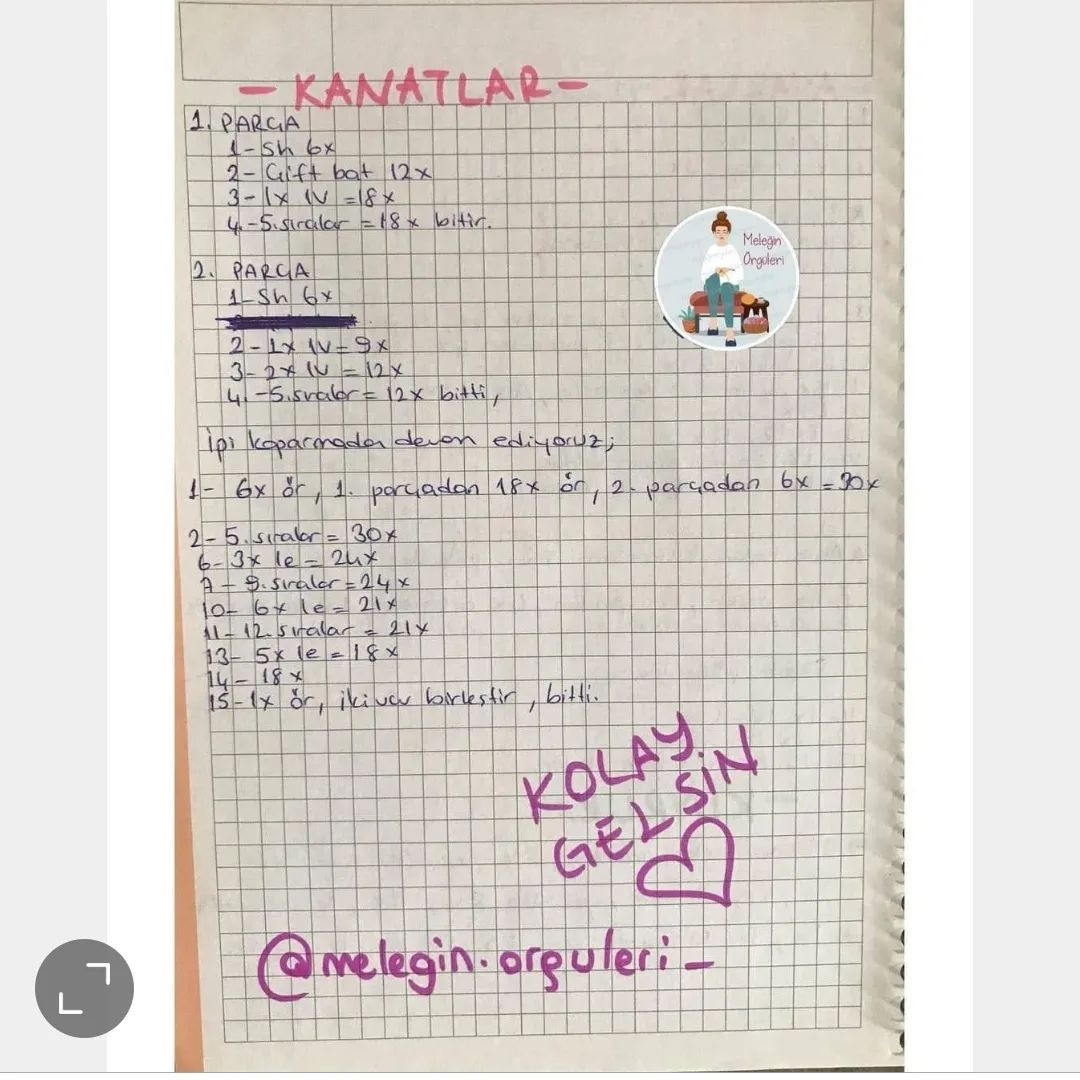 - KANATLAR -
1. PARÇA
1- Sh 6x
2- Çift bat 12x
3- 1x 1V = 18x
4.-5.sıralar = 18x bitir.
Meleğin
Örgüleri
2. PARÇA
1- Sh 6x
2- 1x 1V = 9x
3- 2x 1V = 12x
4.-5.sıralar = 12x bitti,
İpi koparmadan devam ediyoruz;
1- 6x ör, 1. parçadan 18x ör, 2. parçadan 6x = 30x
2- 5. sıralar = 30x
6- 3x 1e = 24x
7- 9. sıralar = 24x
10- 6x 1e = 21x
11- 12. sıralar = 21x
13- 5x 1e = 18x
14- 18x
15- 1x ör, iki ucu birleştir, bitti.
KOLAY
GELSİN
@melegin.orguleri_